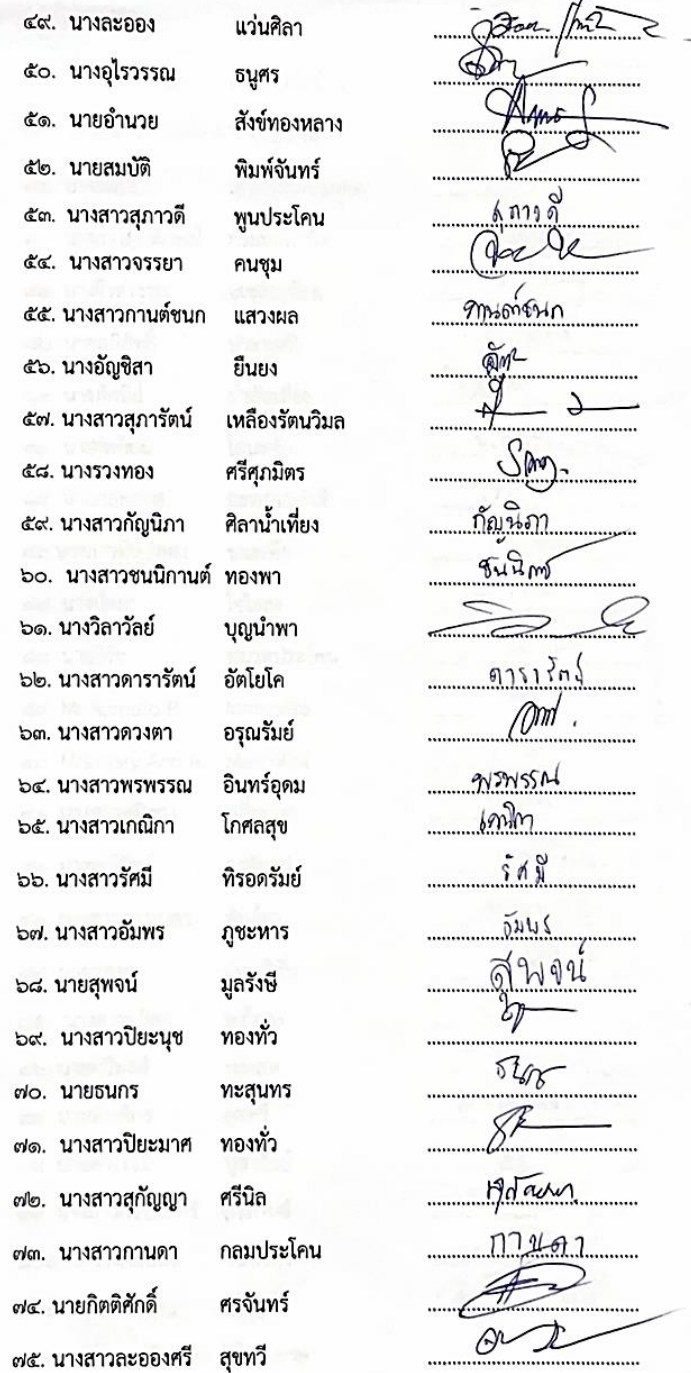 ๔๙. นางละออง แว่นศิลา
๕๐. นางอุไรวรรณ ธนูศร
๕๑. นายอำนวย สังข์ทองหลาง
๕๒. นายสมบัติ พิมพ์จันทร์
๕๓. นางสาวสุภาวดี พูนประโคน สุภาวดี
๕๔. นางสาวจรรยา คนชุม
๕๕. นางสาวกานต์ชนก แสวงผล กานต์ชนก
๕๖. นางอัญชิสา ยืนยง
๕๗. นางสาวสุภารัตน์ เหลืองรัตนวิมล
๕๘. นางรวงทอง ศรีศุภมิตร
๕๙. นางสาวกัญนิภา ศิลาน้ำเที่ยง กัญนิภา
๖๐. นางสาวชนนิกานต์ ทองพา
๖๑. นางวิลาวัลย์ บุญนำพา
๖๒. นางสาวดารารัตน์ อัตโยโค ดารารัตน์
๖๓. นางสาวดวงตา อรุณรัมย์
๖๔. นางสาวพรพรรณ อินทร์อุดม พรพรรณ
๖๕. นางสาวเกณิกา โกศลสุข เกณิกา
๖๖. นางสาวรัศมี ทิรอดรัมย์ รัศมี
๖๗. นางสาวอัมพร ภูชะหาร อัมพร
๖๘. นายสุพจน์ มูลรังษี สุพจน์
๖๙. นางสาวปิยะนุช ทองทั่ว
๗๐. นายธนกร ทะสุนทร ธนกร
๗๑. นางสาวปิยะมาศ ทองทั่ว
๗๒. นางสาวสุกัญญา ศรีนิล สุกัญญา
๗๓. นางสาวกานดา กลมประโคน กานดา
๗๔. นายกิตติศักดิ์ ศรจันทร์
๗๕. นางสาวละอองศรี สุขทวี